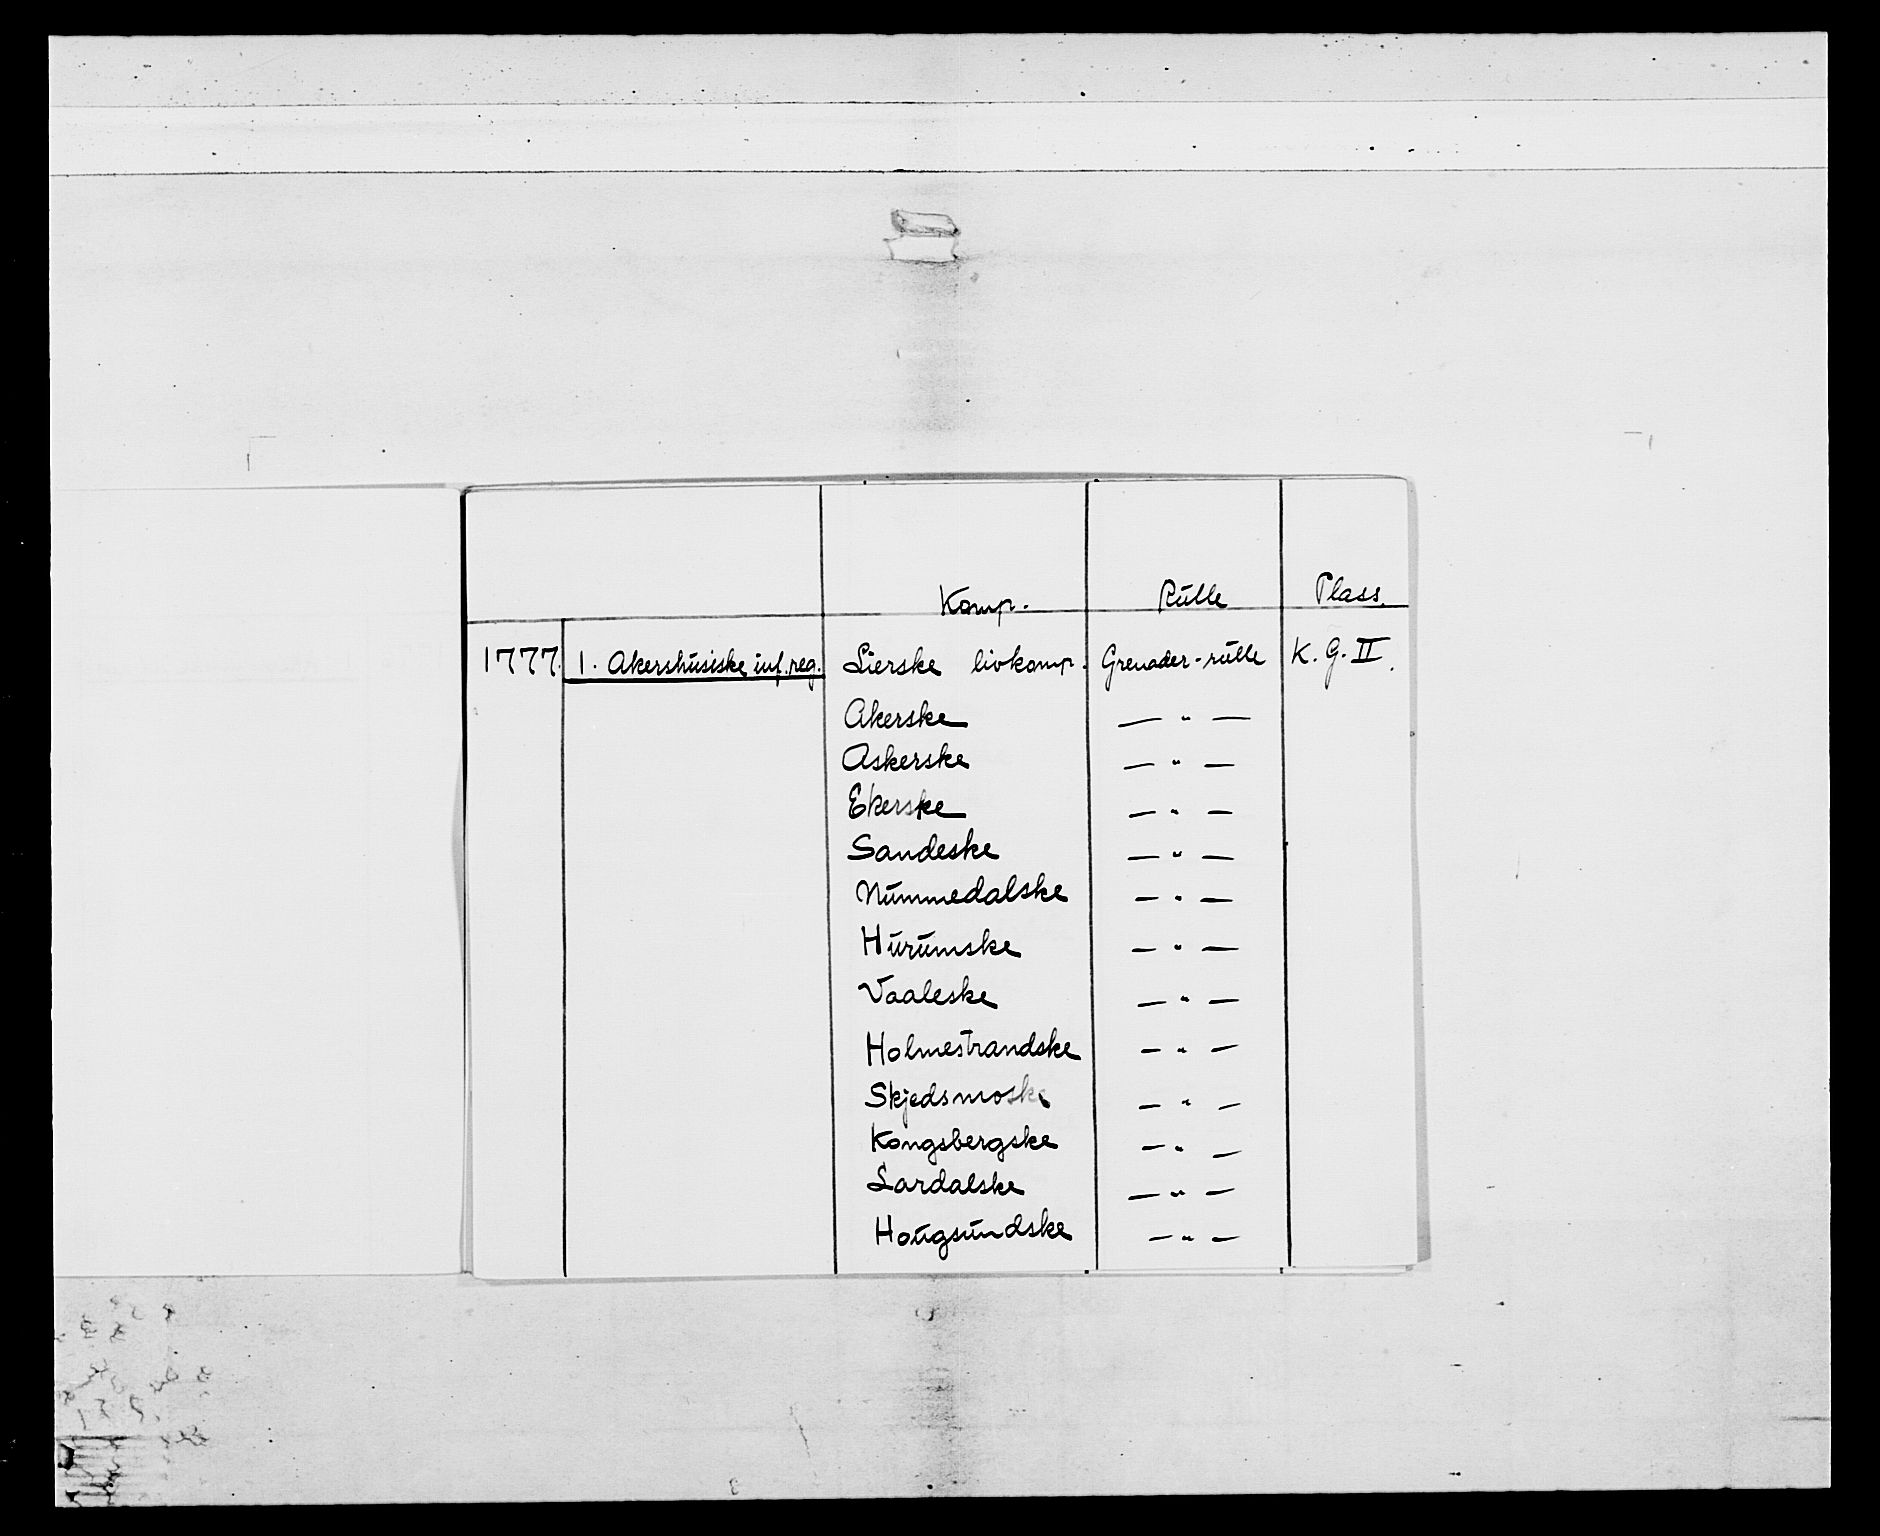 Komp. Rulle Plass.
1777. 1. Akershusiske inf. reg. Lierske livkomp. Grenader-rulle K. G. II.
Akerske — " —
Askerske — " —
Ekerske — " —
Sandeske — " —
Nummedalske — " —
Hurumske — " —
Vaaleske — " —
Holmestrandske — " —
Skjedsmoske — " —
Kongsbergske — " —
Lardalske — " —
Hougsundske — " —